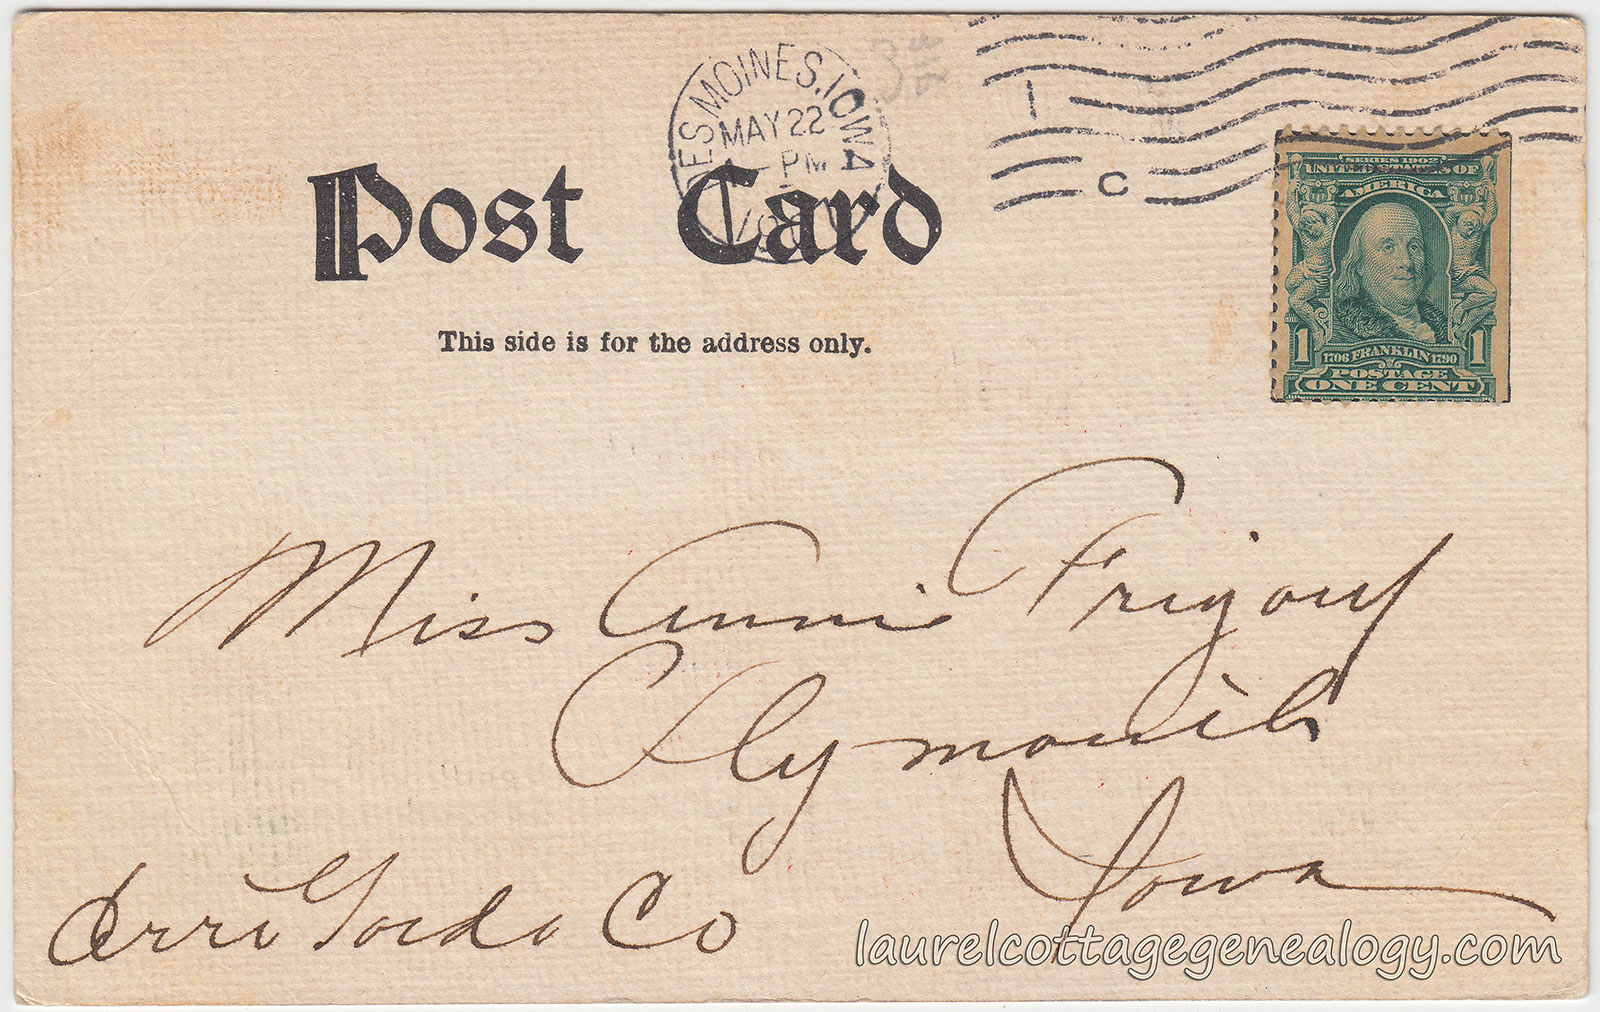 DES MOINES, IOWA
MAY 22
PM
1
C
Post Card
This side is for the address only.
SERIES 1902
UNITED STATES OF
AMERICA
1 1706 FRANKLIN 1790 1
POSTAGE
ONE CENT
Miss Annie
Plymouth
Iowa
Cerro Gordo Co
laurelcottagegenealogy.com